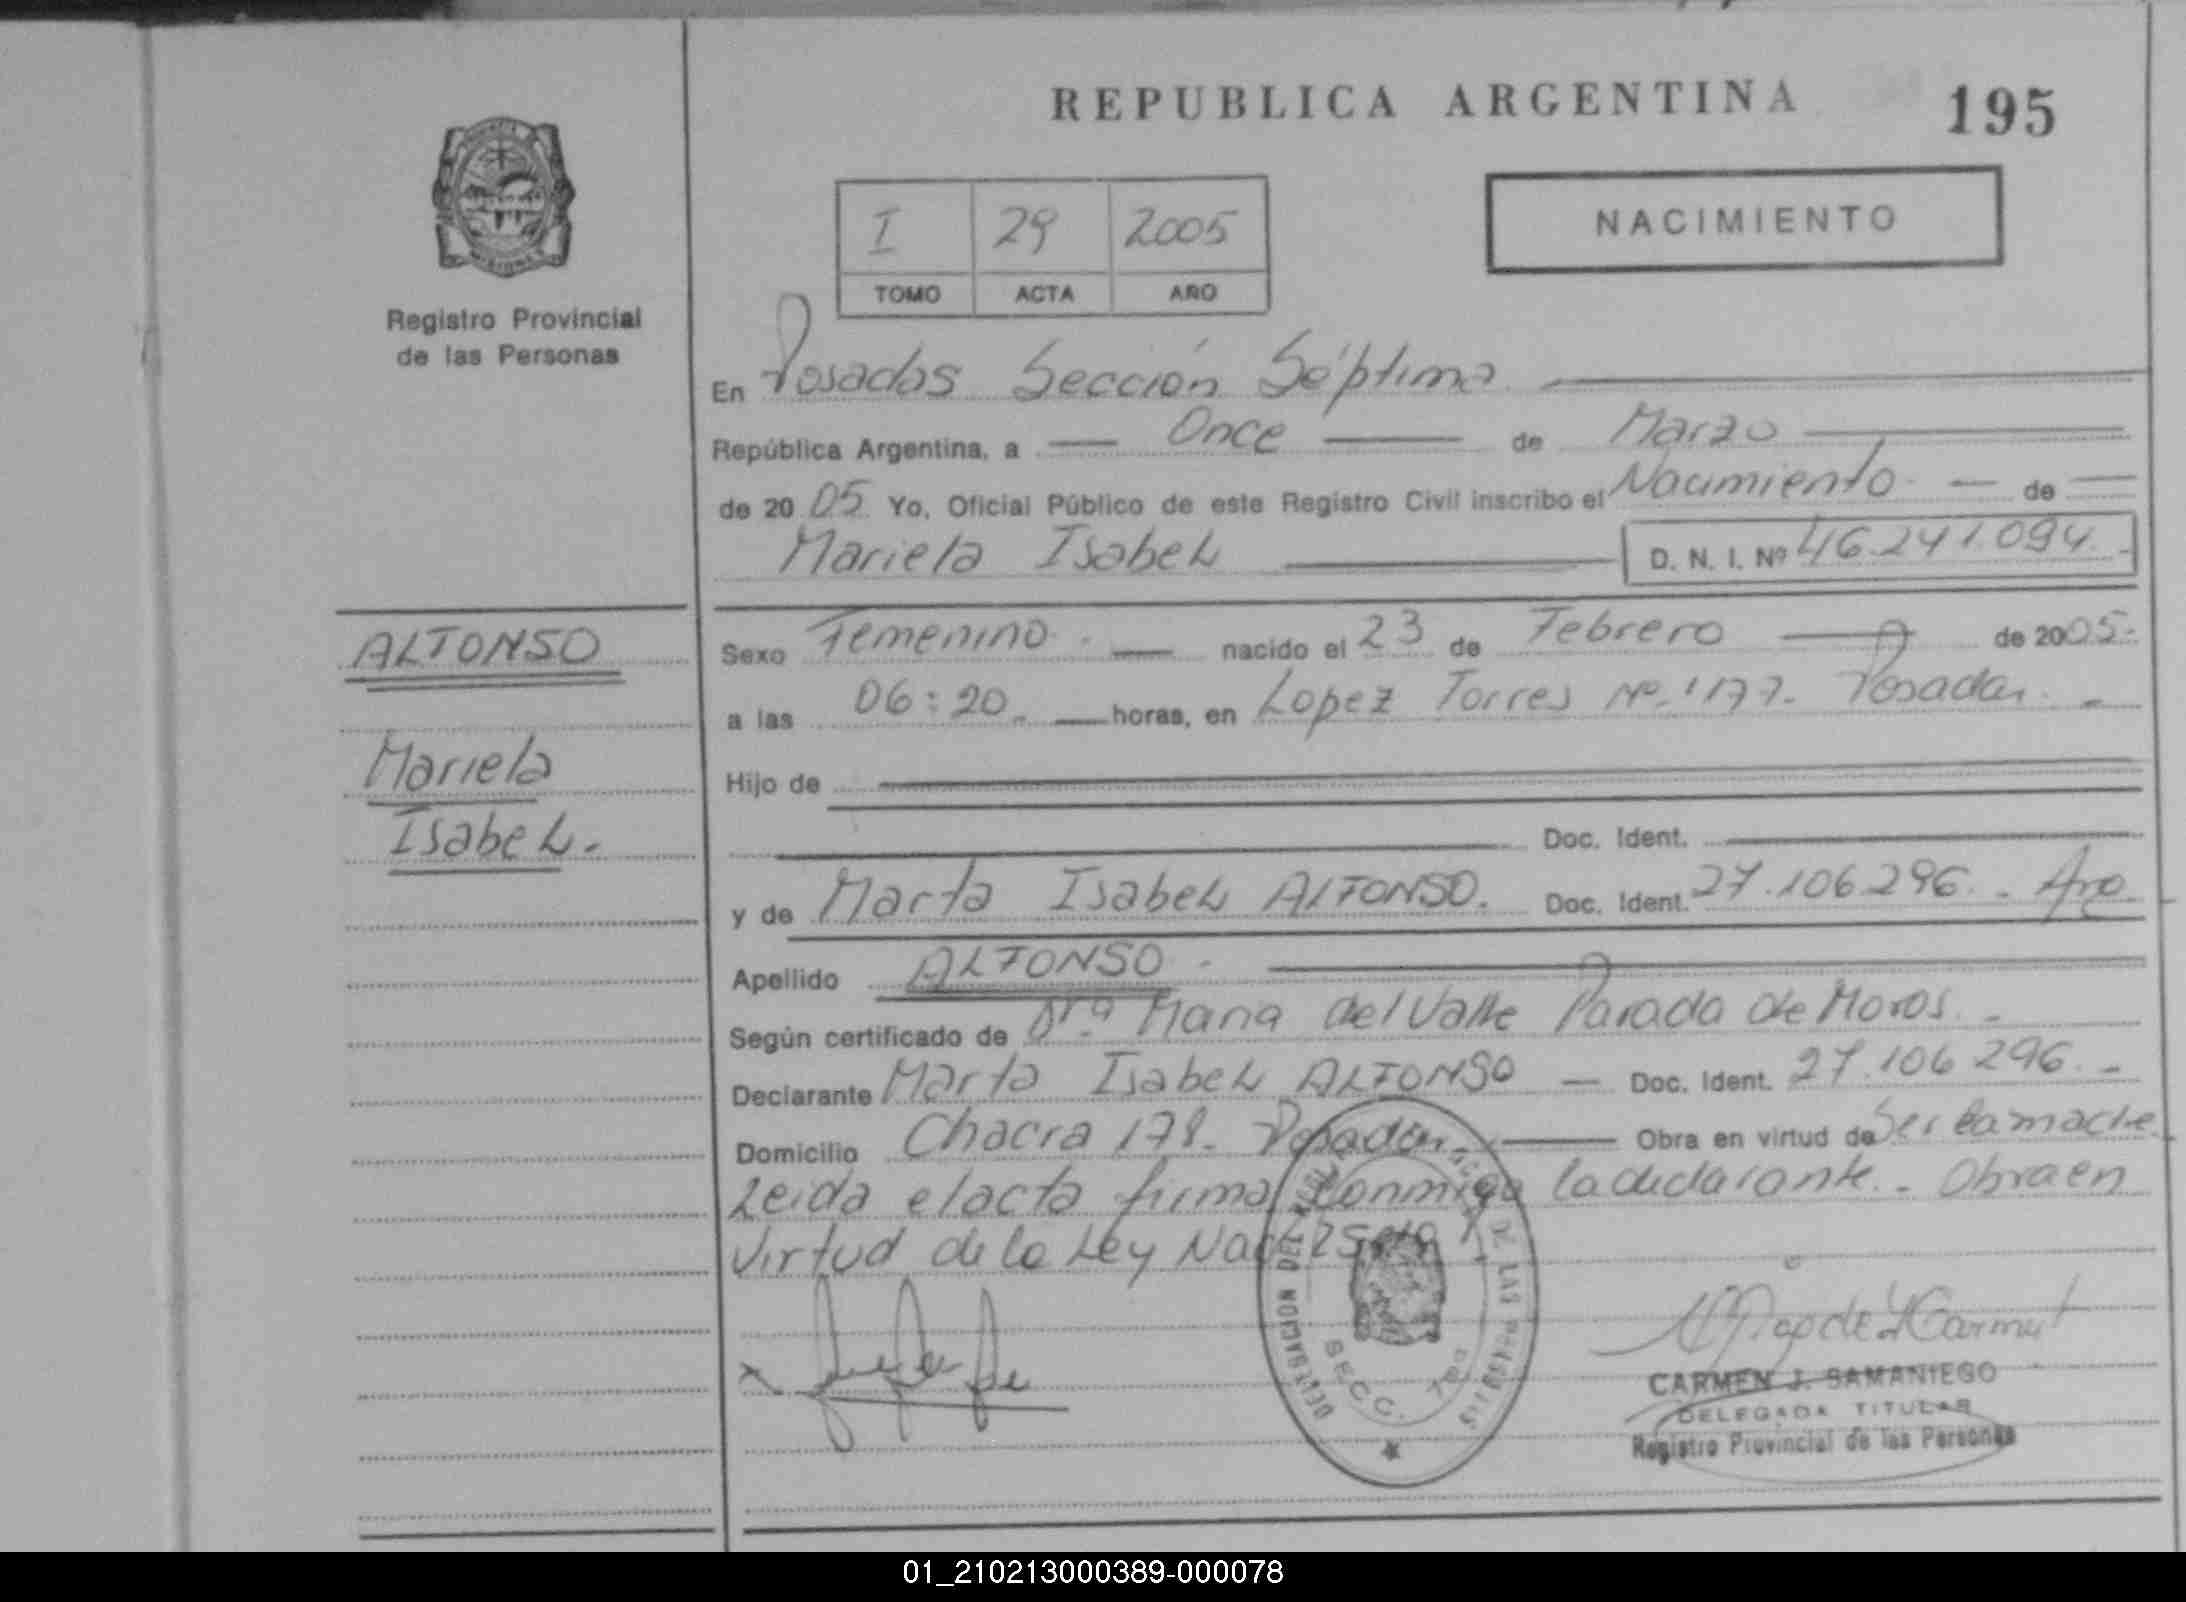 REPUBLICA ARGENTINA 195
I 29 2005
TOMO ACTA AÑO
NACIMIENTO
Registro Provincial
de las Personas
En Posadas Sección Séptima
República Argentina, a Once de Marzo
de 20 05 Yo, Oficial Público de este Registro Civil inscribo el Nacimiento de
Mariela Isabel D. N. I. Nº 46.241.094.
ALFONSO
Mariela
Isabel.
Sexo Femenino. nacido el 23 de Febrero de 2005.
a las 06:20 horas, en Lopez Torres Nº 1177. Posadas.
Hijo de
Doc. Ident.
y de Marta Isabel ALFONSO. Doc. Ident. 27.106.296. Arg.
Apellido ALFONSO.
Según certificado de Drª Maria del Valle Parada de Moros.
Declarante Marta Isabel ALFONSO Doc. Ident. 27.106.296.
Domicilio Chacra 178. Posadas Obra en virtud de Ser la madre
Leida el acta firma conmigo la declarante. Obra en
virtud de la Ley Nac.
DELEGACION DEL DE LAS
SECC. 7ma
CARMEN J. SAMANIEGO
DELEGADA TITULAR
Registro Provincial de las Personas
01_210213000389-000078